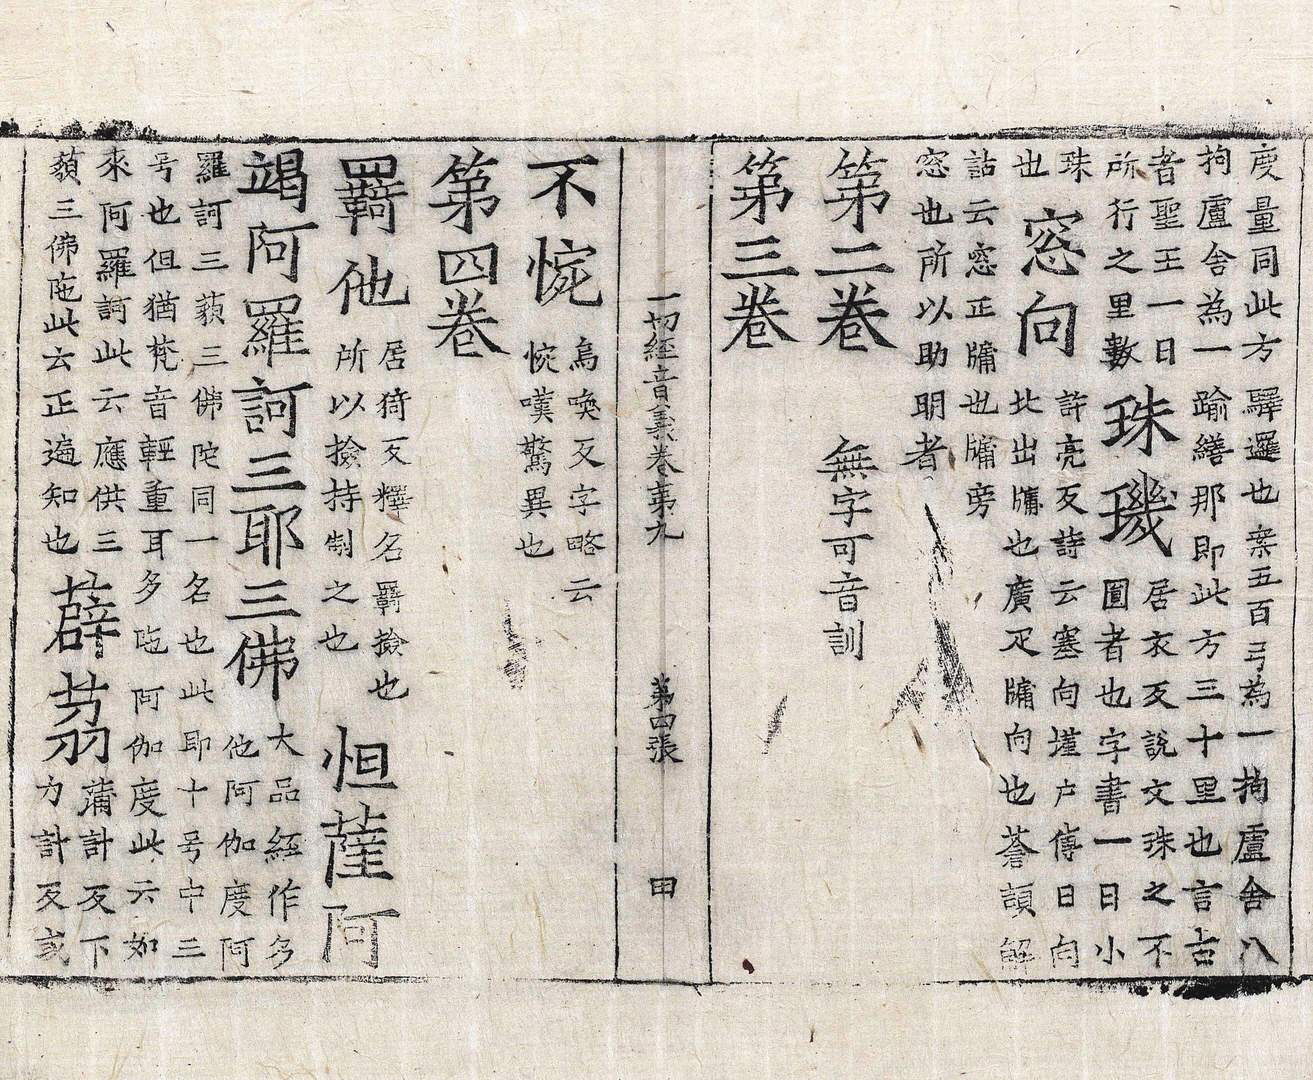 度量同此方驛邏也案五百弓為一拘盧舍八
拘盧舍為一踰繕那即此方三十里也言古
者聖王一日
所行之里數
珠璣
居衣反說文珠之不
圓者也字書一曰小
珠
也
窓向
許亮反詩云塞向墐户傳曰向
北出牖也廣疋牖向也蒼頡解
詁云窓正牖也牖旁
窓也所以助明者
第二卷 無字可音訓
第三卷
一切經音義卷第九 第四張 田
不惋
烏喚反字略云
惋嘆驚異也
第四卷
羈他
居猗反釋名羈撿也
所以撿持制之也
怛薩阿
竭阿羅訶三耶三佛
大品經作多
他阿伽度阿
羅訶三藐三佛陀同一名也此耶十号中三
号也但猶梵音輕重耳多陁阿伽度此云如
來阿羅訶此云應供三
藐三佛陁此云正遍知也
薜荔
蒲計反下
力計反或